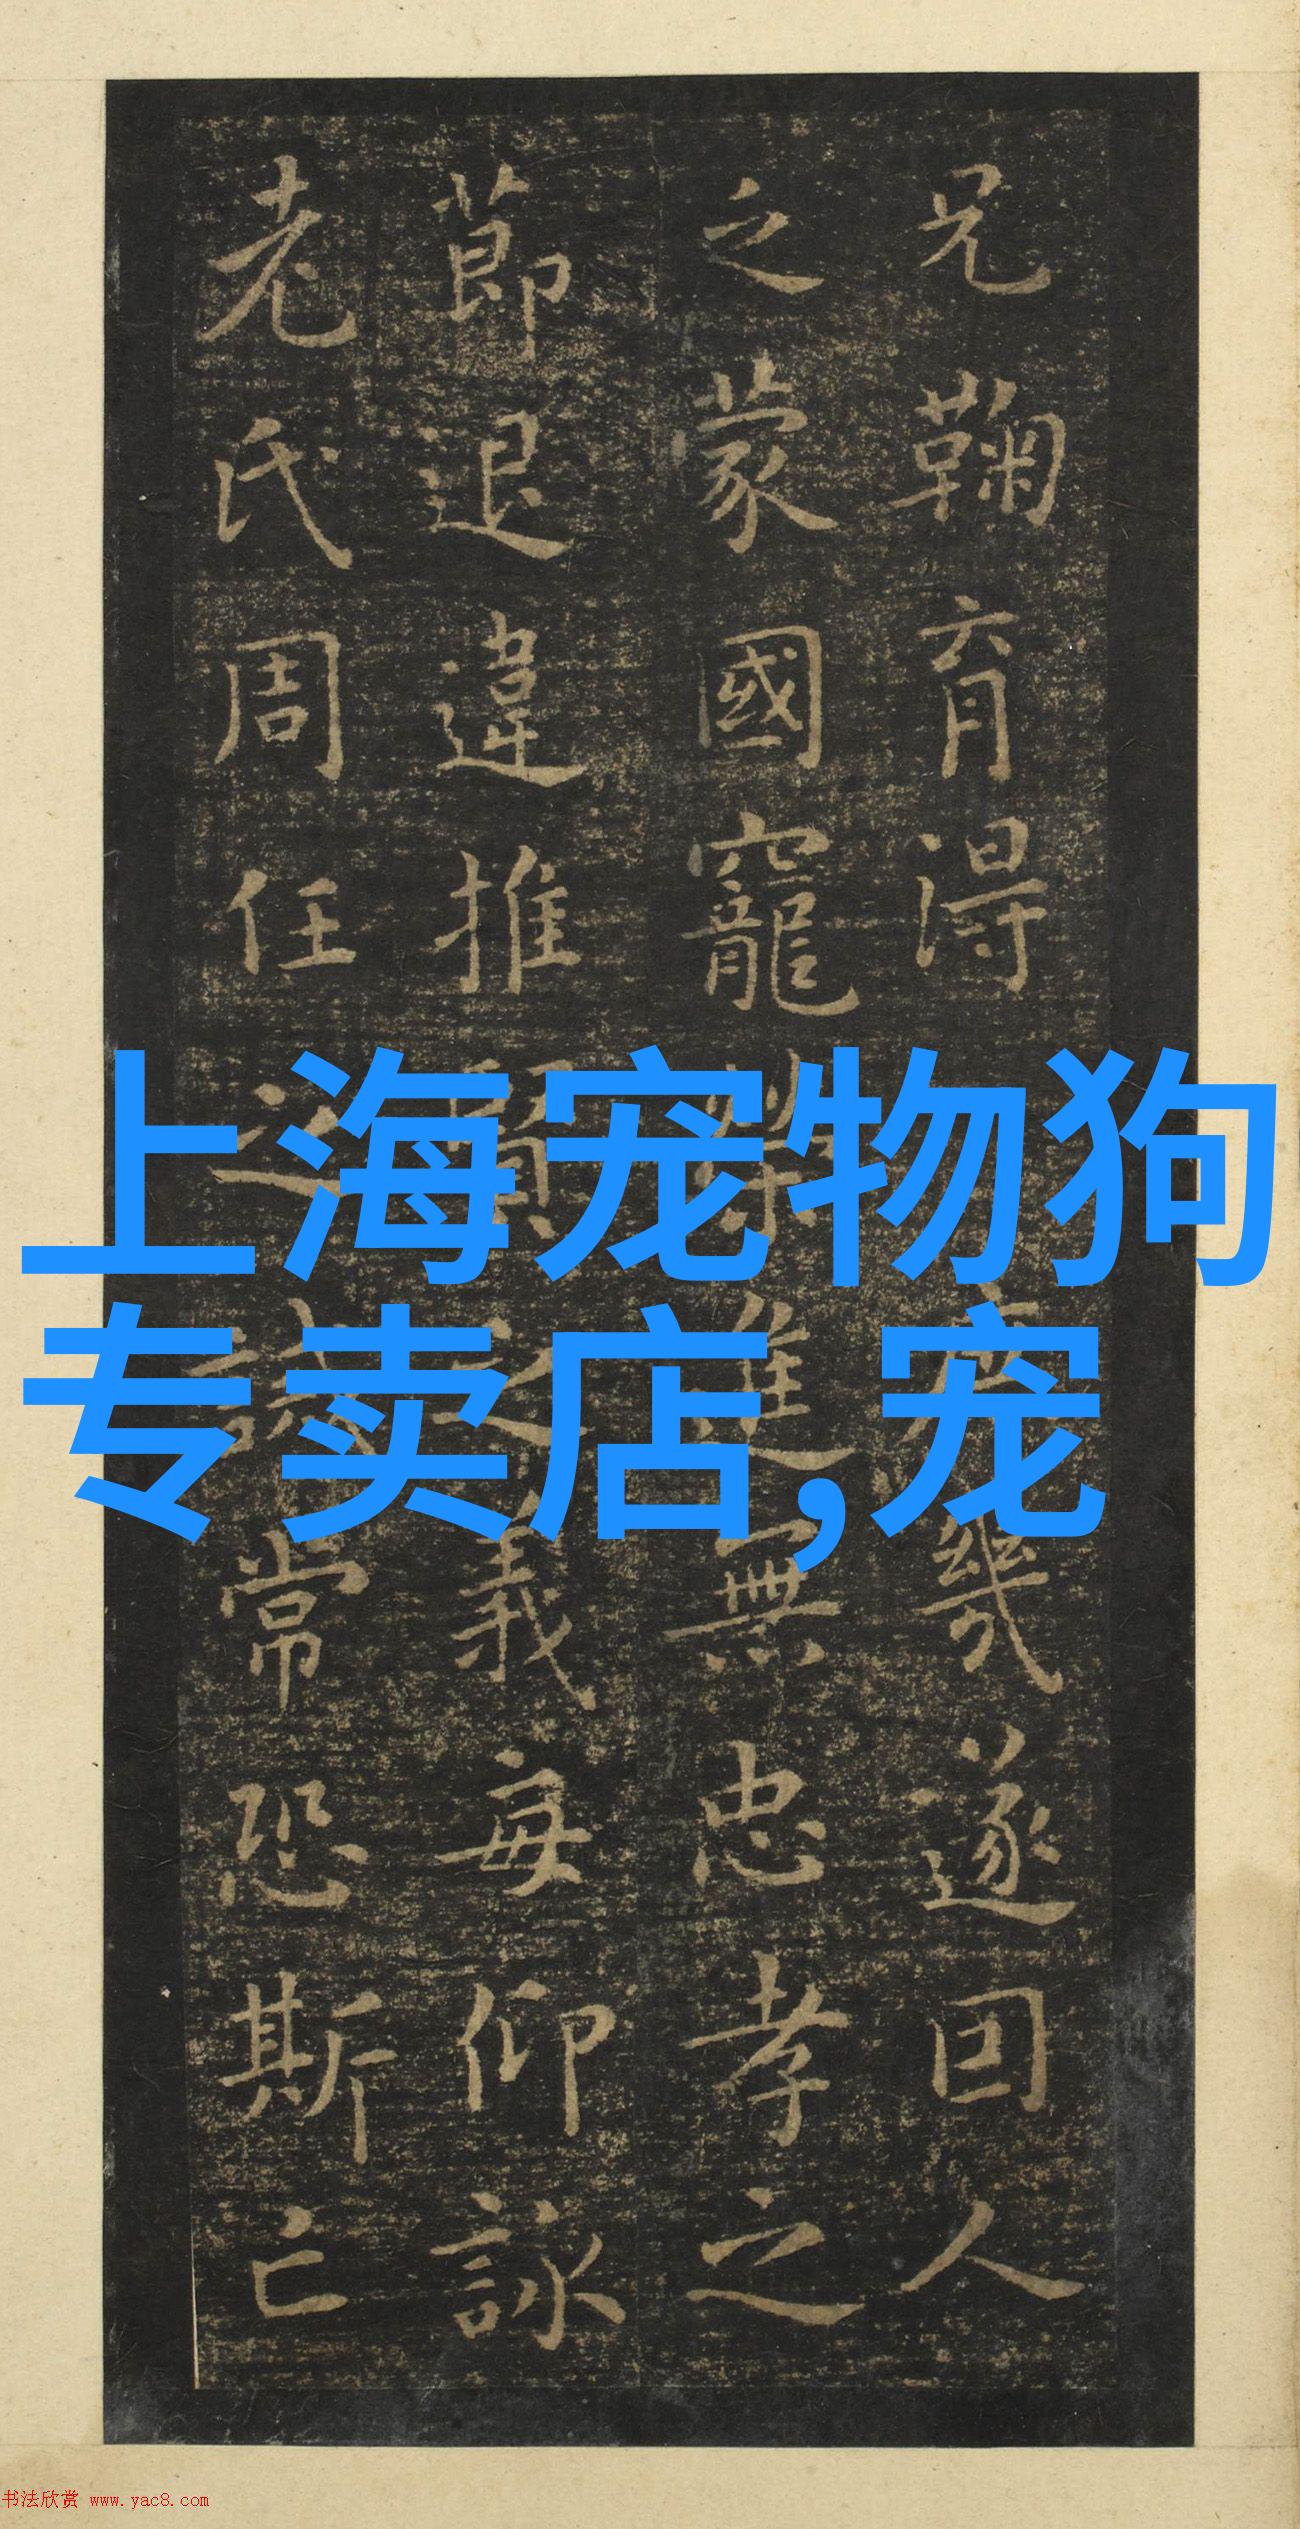 兄鞠育得庶幾遂回人
之蒙國寵榮進無忠孝之
節退違推賢之義每仰詠
老氏周任之誡常恐斯亡
上海宠物狗
专卖店,宠
书法欣赏 www.yac8.com